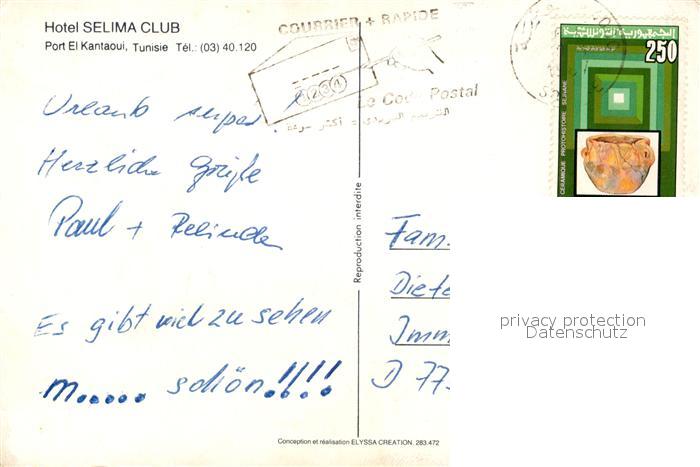 Hotel SELIMA CLUB
Port El Kantaoui, Tunisie Tél.: (03) 40.120
COURRIER + RAPIDE
1234
Le Code Postal
الترقيم البريدي = أكثر سرعة
الجمهورية التونسية
250
CERAMIQUE PROTOHISTOIRE SEJNANE
Urlaub super!
Herzliche Grüße
Paul + Relinde
Es gibt viel zu sehen
m..... schön!!!!
Reproduction interdite
Fam.
Diete
Imm
D 77
privacy protection
Datenschutz
Conception et réalisation ELYSSA CREATION. 283.472